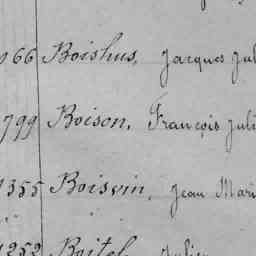 66 Boishus, Jacques Jul
799 Boison, François Juli
1355 Boisvin, Jean Mari
1252 Boitel, Julien